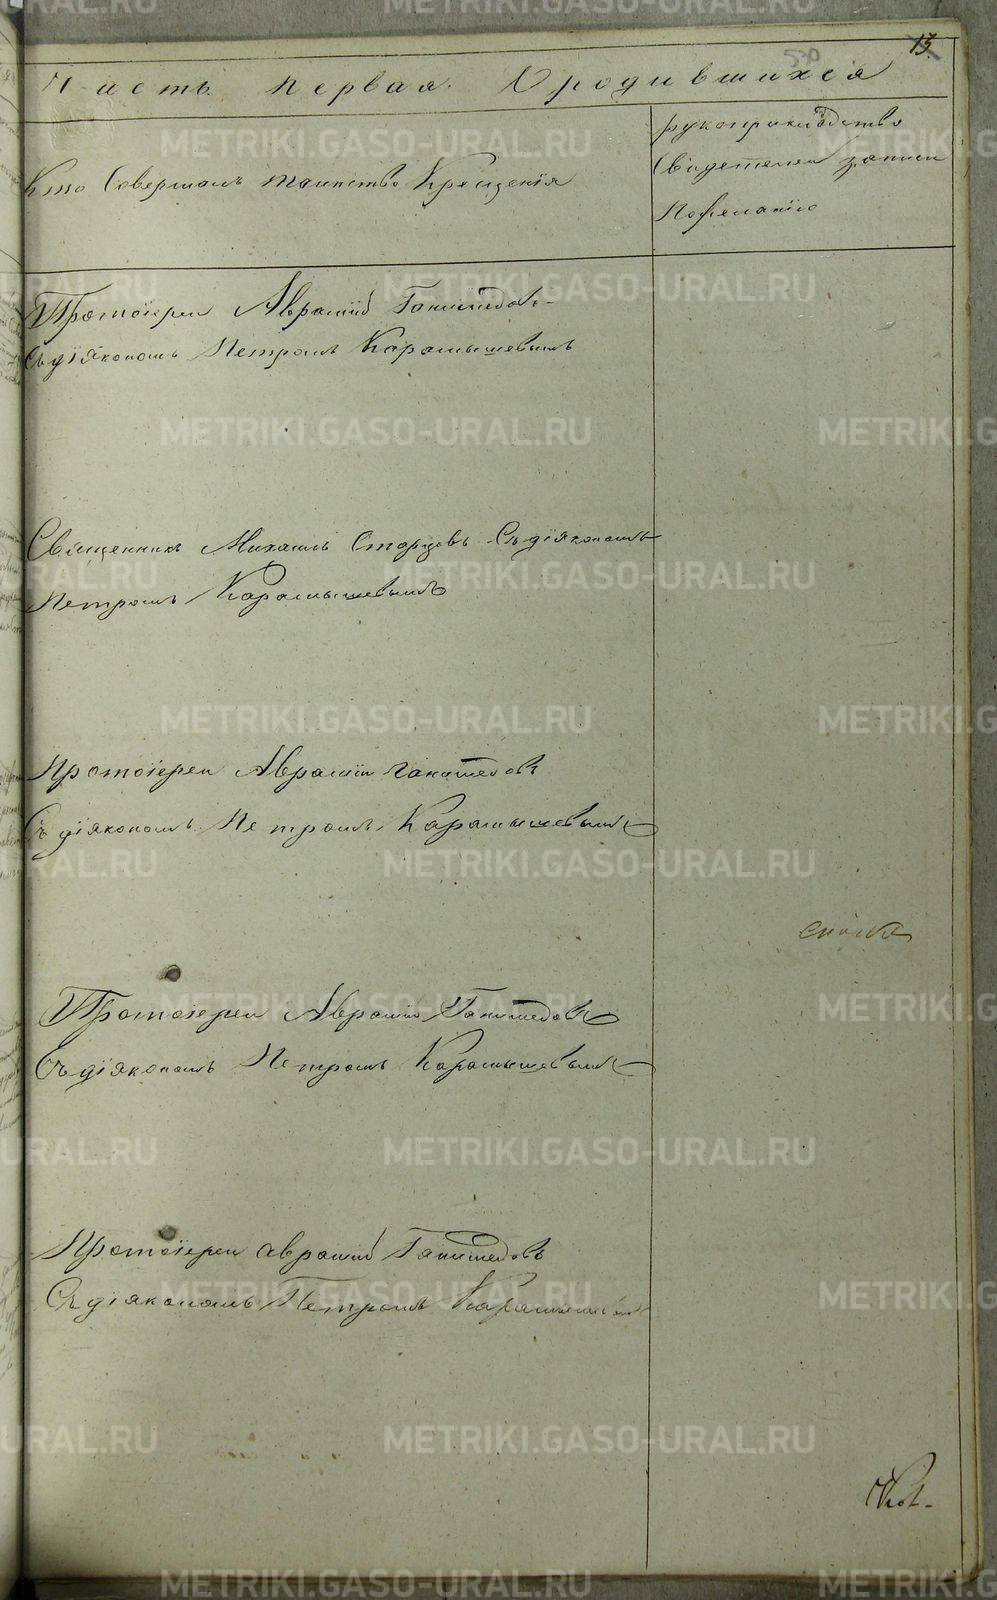 13.
Часть первая. О родившихся
Кто совершалъ таинство крещенія
рукоприкладство
свидетелей записи
по желанію
Протоіерей Аврамій Ганимедовъ
съ діякономъ Петромъ Карамышевымъ
Священникъ Михаилъ Старцовъ съ діякономъ
Петромъ Карамышевымъ
Протоіерей Аврамій Ганимедовъ
Съ діякономъ Петромъ Карамышевымъ
Протоіерей Аврамій Ганимедовъ
Съ діякономъ Петромъ Карамышевымъ
Протоіерей Аврамій Ганимедовъ
Съ діякономъ Петромъ Карамышевымъ
METRIKI.GASO-URAL.RU